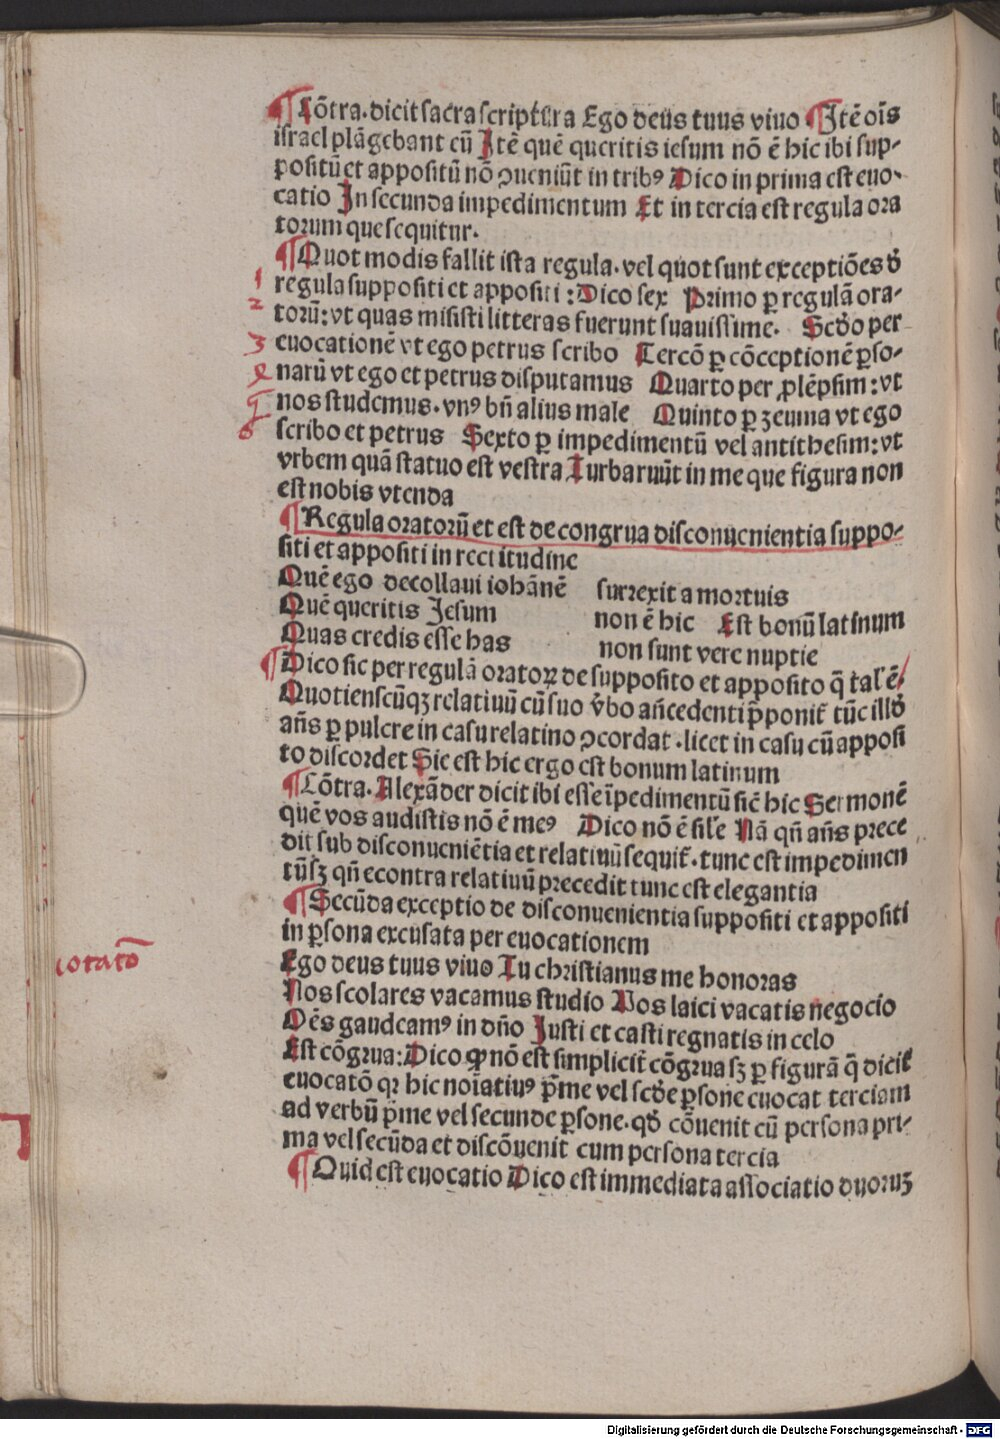 ¶ Cõtra. dicit sacra scriptura Ego deus tuus viuo ¶ Itē oīs
israel plãgebant eũ Itē quē queritis iesum nõ ē hic ibi sup-
positũ et appositũ nõ ꝯueniũt in tribꝰ Dico in prima est euo-
catio In secunda impedimentum Et in tercia est regula ora
torum que sequitur.
¶ Quot modis fallit ista regula. vel quot sunt exceptiões d̄
1 regula suppositi et appositi: Dico sex Primo ꝑ regulã ora-
2 torũ: vt quas misisti litteras fuerunt suauissime. Scd̄o per
3 euocationē vt ego petrus scribo Tercõ ꝑ cõceptionē ꝑso-
narũ vt ego et petrus disputamus Quarto per ꝓlēpsim: vt
nos studemus. vnꝰ bñ alius male Quinto ꝑ zeuma vt ego
6 scribo et petrus Sexto ꝑ impedimentũ vel antithesim: vt
vrbem quã statuo est vestra Turbarũt in me que figura non
est nobis vtenda
¶ Regula oratorũ et est de congrua disconuenientia suppo-
siti et appositi in rectitudine
Quē ego decollaui iohãnē surrexit a mortuis
Quē queritis Jesum non ē hic Est bonũ latinum
Quas credis esse has non sunt vere nuptie
¶ Dico sic per regulã oratoꝝ de supposito et apposito q̄ tal' ē.
Quotienscũqꝫ relatiuũ cũ suo v̄bo añcedenti p̄ponit̄ tũc illd̄
añs ꝑ pulcre in casu relatiuo ꝯcordat. licet in casu cũ apposi
to discordet Sic est hic ergo est bonum latinum
¶ Cõtra. Alexãder dicit ibi esse īpedimentũ sic̄ hic Sermonē
quē vos audistis nõ ē meꝰ Dico nõ ē sil'e Nã qñ añs prece
dit sub disconueniētia et relatiuũ sequit̄. tunc est impedimen
tũ sꝫ qñ econtra relatiuũ precedit tunc est elegantia
¶ Secũda exceptio de disconuenientia suppositi et appositi
in ꝑsona excusata per euocationem
Ego deus tuus viuo Tu christianus me honoras
Nos scolares vacamus studio Vos laici vacatis negocio
Oēs gaudeamꝰ in dño Justi et casti regnatis in celo
Est cõgrua: Dico ꝙ nõ est simplicit̄ cõgrua sꝫ ꝑ figurã q̄ dicit̄
euocatõ qꝛ hic noīatiuꝰ p̄me vel scd̄e ꝑsone euocat terciam
ad verbũ p̄me vel secunde ꝑsone. qd̄ cõuenit cũ persona pri-
ma vel secũda et discõuenit cum persona tercia
¶ Quid est euocatio Dico est immediata associatio duoruꝫ
Digitalisierung gefördert durch die Deutsche Forschungsgemeinschaft - DFG